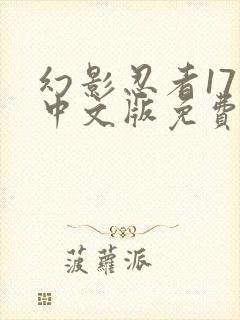 幻影忍者17
中文版免費
菠蘿派